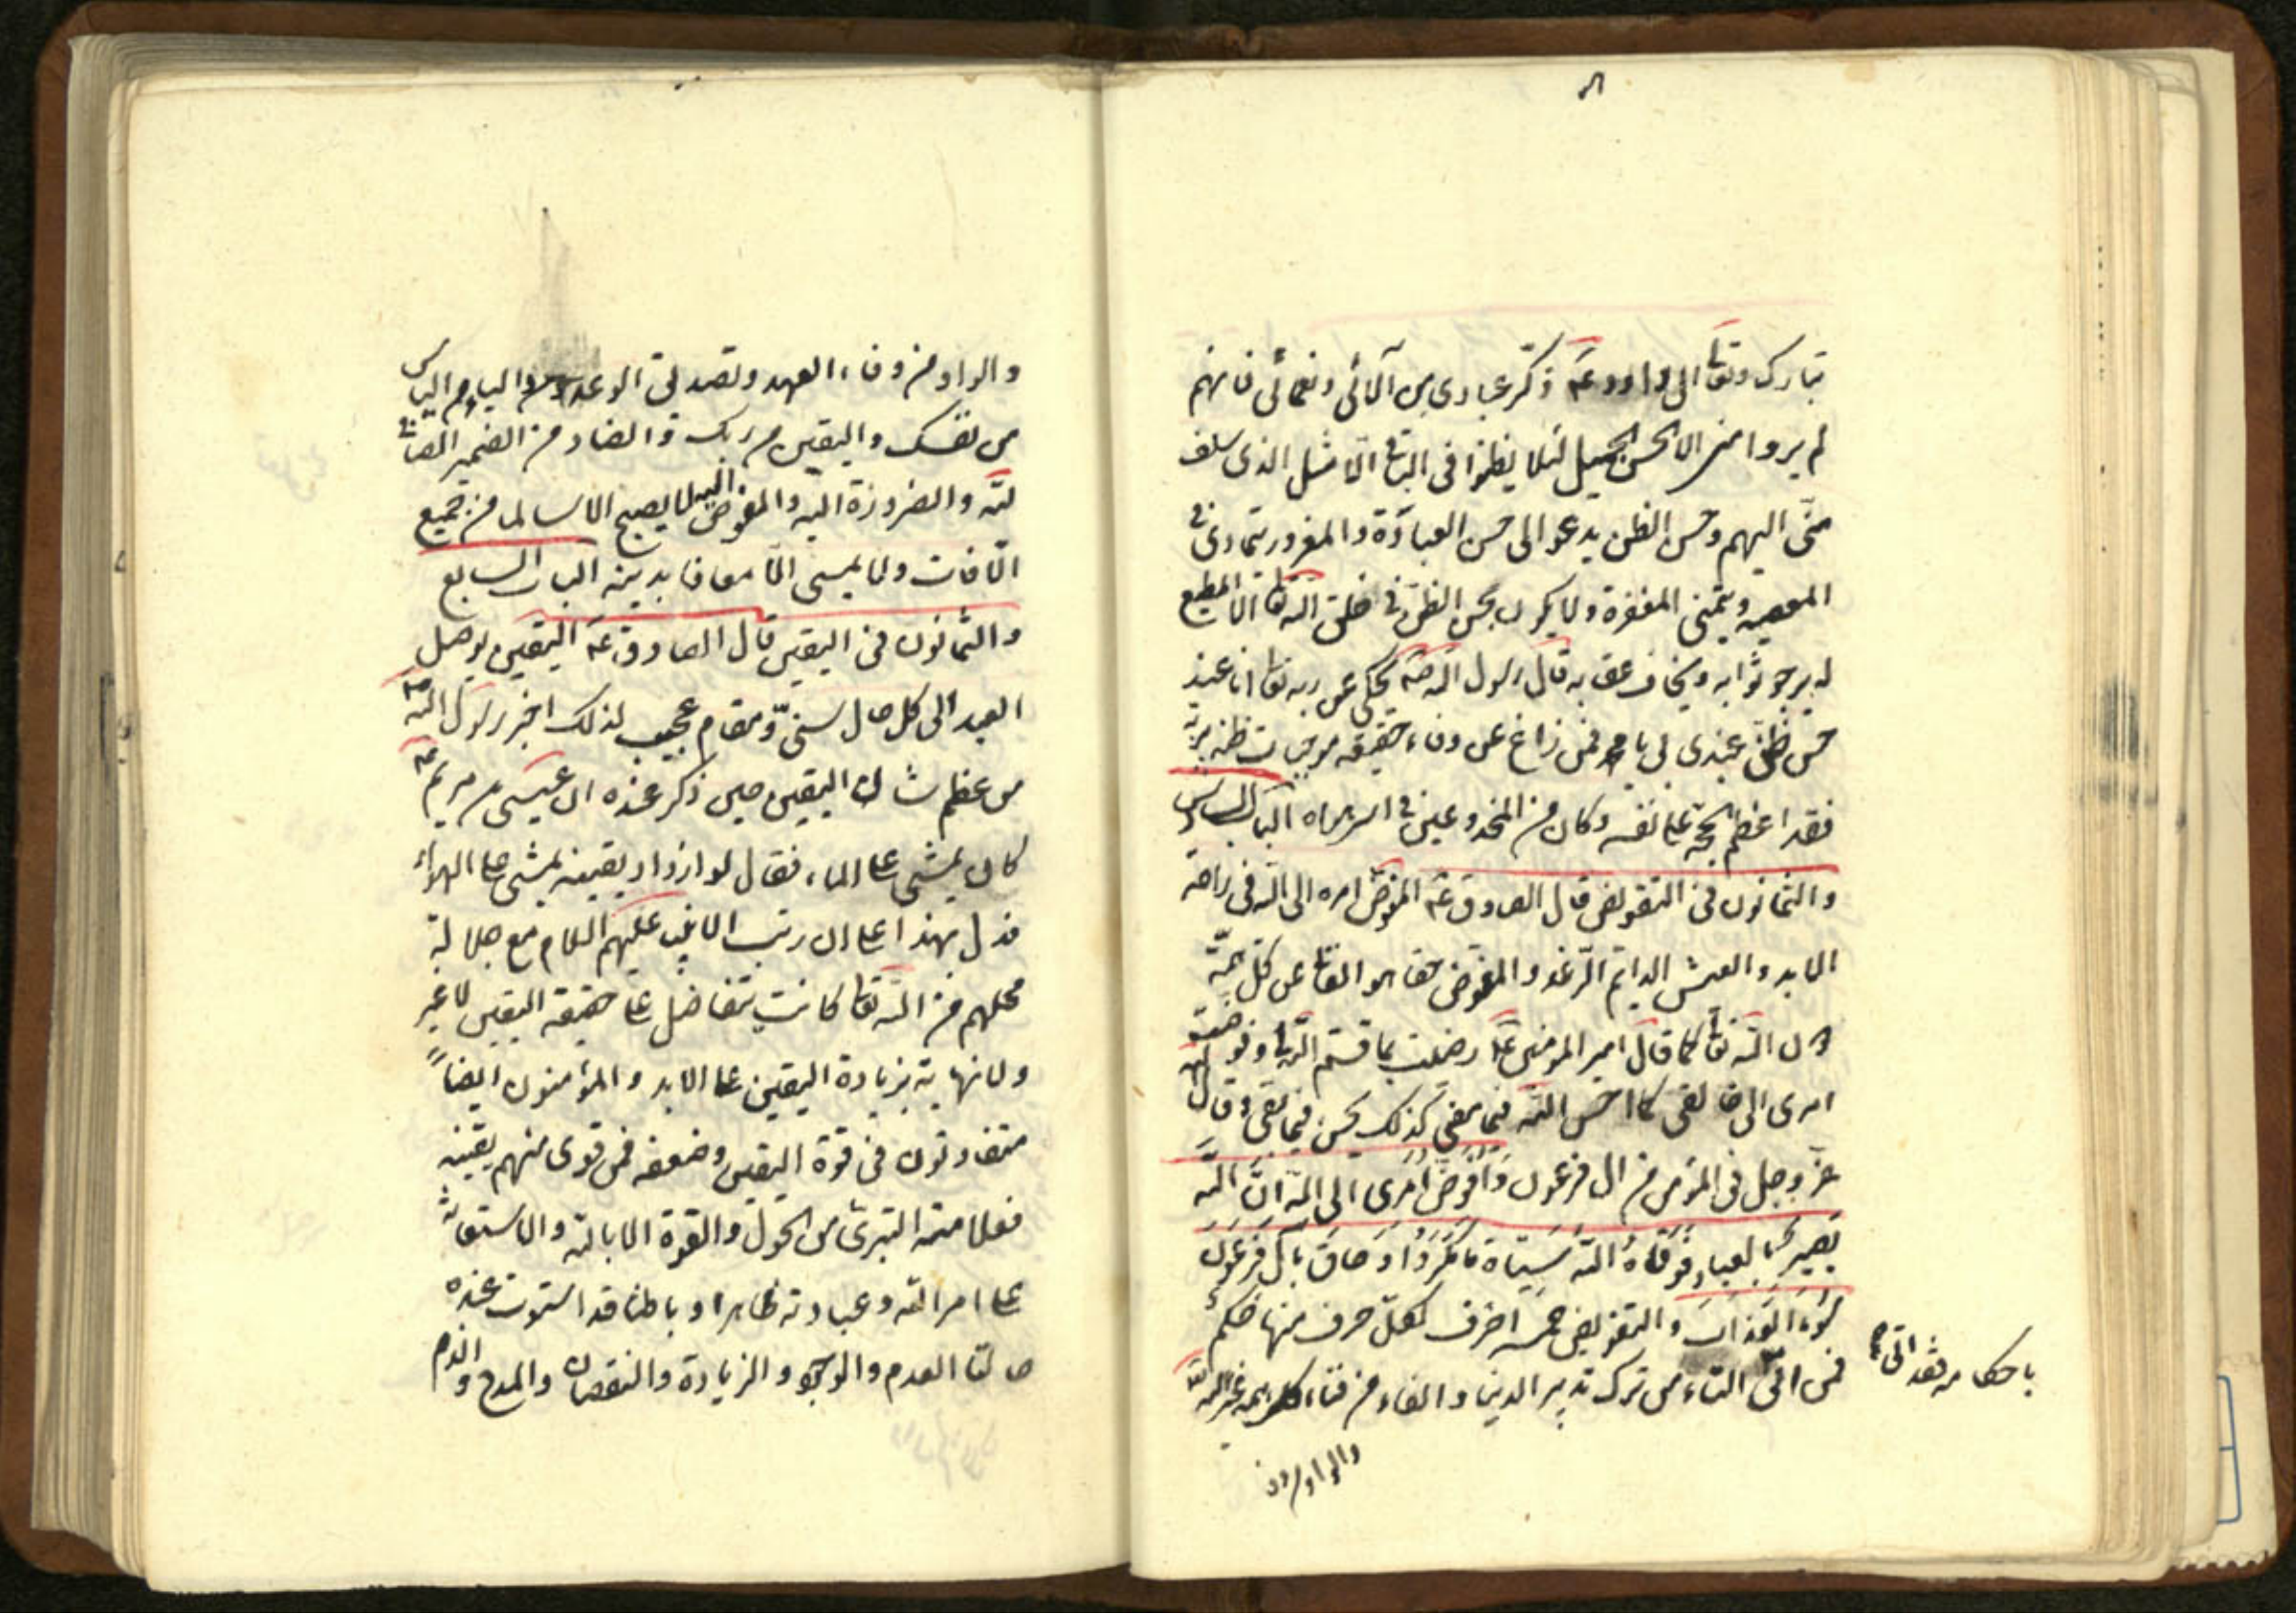 تبارك وتعا الى داود عم ذكّر عبادى من آلائى ونعمائى فانهم
لم يروا منى الا الحسن الجميل لئلا يظنوا فى الباقى الا مثل الذى سلف
منّى اليهم وحسن الظن يدعو الى حسن العبادة والمغرور يتمادى فى
المعصيه ويتمنى المغفرة ولا يكون بحسن الظن فى خلق الله تعا الا المطيع
له يرجو ثوابه ويخاف عقابه قال رسول الله صم يحكى عن ربه تعا انا عند
حسن ظن عبدى بى يا محمد فمن زاغ عن وفاء حقيقه موجبات ظنه بربّه
فقد اعظم الحجة على نفسه وكان من المخدوعين فى اسر هواه الباب السادس
والثمانون فى التفويض قال الصادق عم المفوض امره الى الله فى راحة
الابد والعيش الدايم الرّغد والمفوض حقا هو العا عن كل همّة
دون الله تعا كما قال امير المومنين عم رضيت بما قسم الله لى وفوضت
امرى الى خالقى كما احسن الله فيما مضى كذلك يحسن فيما بقى وقال الله
عز وجل فى المؤمن من ال فرعون وَاُفَوِّضُ اَمْرِى الى الله انَّ الله
بَصِيرٌ بالعباد فَوَقَاهُ اللهُ سَيِّئاة مَا مَكَرُوْا وَحَاقَ بِآلِ فِرْعَوْنَ
سُوءُ الْعَذَابِ والتفويض خمسه احرف لكل حرف منها حكم
فمن اتى التاء من ترك تدبير الدينا والفاء من فناء كل همه غير الله تعا
باحكامه فقد اتى به
والواو من وفا
والواو من وفاء العهد وتصديق الوعد والياء من الياس
من نفسك واليقين من ربك والضاد من الضمير الصافى
لله والضرورة اليه والمفوض اليه لا يصبح الا سالما من جميع
الآفات ولا يمسى الّا معافا بدينه الباب السابع
والثمانون فى اليقين قال الصادق عم اليقين يوصل
العبد الى كل حال سنىّ ومقام عجيب لذلك اخبر رسول الله صم
من عظم شان اليقين حين ذكر عنده ان عيسى بن مريم عم
كان يمشى على الماء فقال لو ازداد يقينه لمشى على الهواء
فدل بهذا على ان رتب الانبيا عليهم السلام مع جلالة
محلهم من الله تعا كانت تتفاضل على حقيقة اليقين لا غير
ولا نهاية بزيادة اليقين على الابد والمؤمنون ايضاً
متفاوتون فى قوة اليقين وضعفه فمن قوى منهم يقينه
فعلامته التبرئ من الحول والقوة الا بالله والاستقامة
على امر الله وعبادته ظاهرا وباطنا قد استوت عنده
حالتا العدم والوجود والزيادة والنقصان والمدح والذم